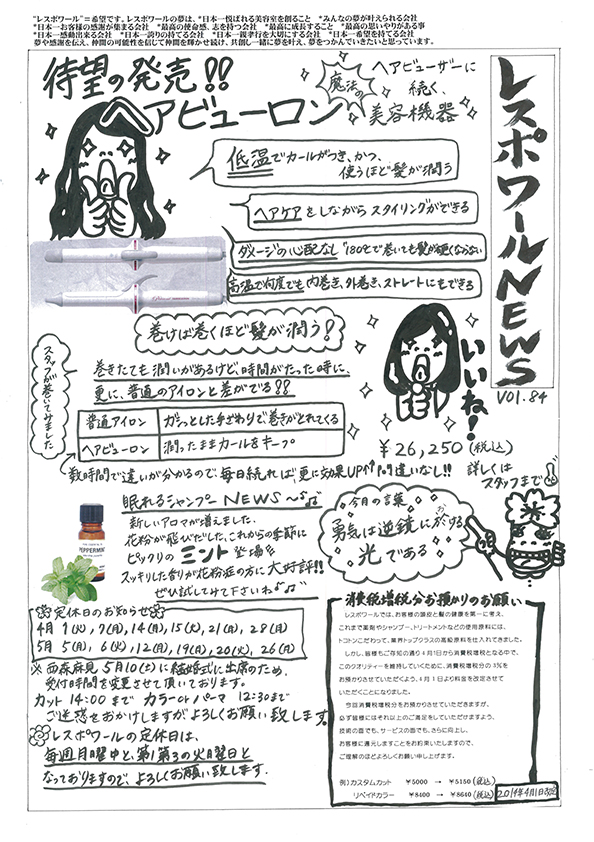 "レスポワール"=希望です。レスポワールの夢は、*日本一悦ばれる美容室を創ること *みんなの夢が叶えられる会社
*日本一お客様の感謝が集まる会社 *最高の使命感、志を持つ会社 *最高に成長すること *最高の思いやりがある事
*日本一感動出来る会社 *日本一誇りの持てる会社 *日本一親孝行を大切にする会社 *日本一希望を持てる会社
夢や感謝を伝え、仲間の可能性を信じて仲間を輝かせ続け、共創し一緒に夢を叶え、夢をつかんでいきたいと思っています。
レスポワールNEWS
VOl.84
待望の発売!!
ヘアビューロン
ヘアビューザーに
続く、
魔法の
美容機器
低温でカールがつき、かつ、
使うほど髪が潤う
ヘアケアをしながらスタイリングができる
ダメージの心配なし"180℃で巻いても髪が硬くならない
高温で何度でも内巻き、外巻き、ストレートにもできる
巻けば巻くほど髪が潤う!
いいね!
スタッフが巻いてみました
巻きたても潤いがあるけど、時間がたった時に、
更に、普通のアイロンと差がでる!!
普通アイロン ガシッとした手ざわりで巻きがとれてくる
ヘアビューロン 潤ったままカールをキープ
数時間で違いが分かるので、毎日続ければ更に効果UP↑間違いなし!!
¥26,250(税込)
詳しくは
スタッフまで
眠れるシャンプーNEWS〜♪
新しいアロマが増えました。
花粉が飛びだした、これからの季節に
ピッタリのミント登場
スッキリした香りが花粉症の方に大好評!!
ぜひ試してみて下さいね♪
PEPPERMINT
今月の言葉
勇気は逆鏡に於ける
お
光である
定休日のお知らせ
4月 1(火),7(月),14(月),15(火),21(月),28(月)
5月 5(月),6(火),12(月),19(月),20(火),26(月)
※西森麻見 5月10(土)に結婚式に出席のため、
受付時間を変更させて頂いております。
カット 14:00まで カラーorパーマ 12:30まで
ご迷惑をおかけしますがよろしくお願い致します。
レスポワールの定休日は、
毎週月曜中と、第1第3の火曜日と
なっておりますので、よろしくお願い致します.
消費税増税分お預かりのお願い
レスポワールでは、お客様の頭皮と髪の健康を第一に考え、
これまで薬剤やシャンプー、トリートメントなどの使用原料には、
トコトンこだわって、業界トップクラスの高級原料を仕入れてきました。
しかし、皆様もご存知の通り4月1日から消費税増税となる中で、
このクオリティーを維持していくために、消費税増税分の3%を
お預かりさせていただくよう、4月1日より料金を改定させて
いただくことになりました。
今回消費税増税分をお預かりさせていただきますが、
必ず皆様にはそれ以上のご満足をしていただけますよう、
技術の面でも、サービスの面でも、さらに向上し、
お客様に還元しますことをお約束いたしますので、
ご理解のほどよろしくお願い申し上げます。
例)カスタムカット ¥5000 → ¥5150(税込)
リペイドカラー ¥8400 → ¥8640(税込)
2014年4月1日改定